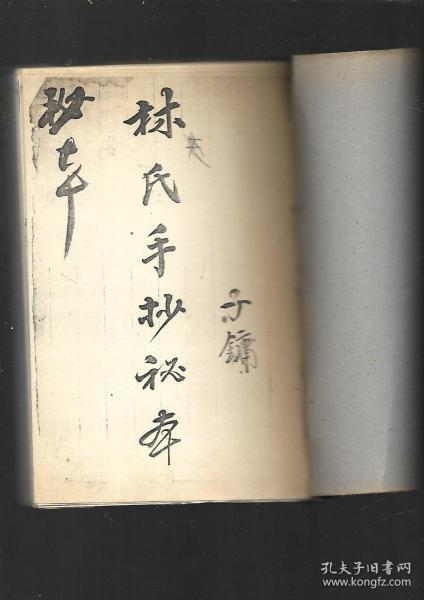 子镛
林氏手抄秘本
秘本
孔夫子旧书网
www.kongfz.com